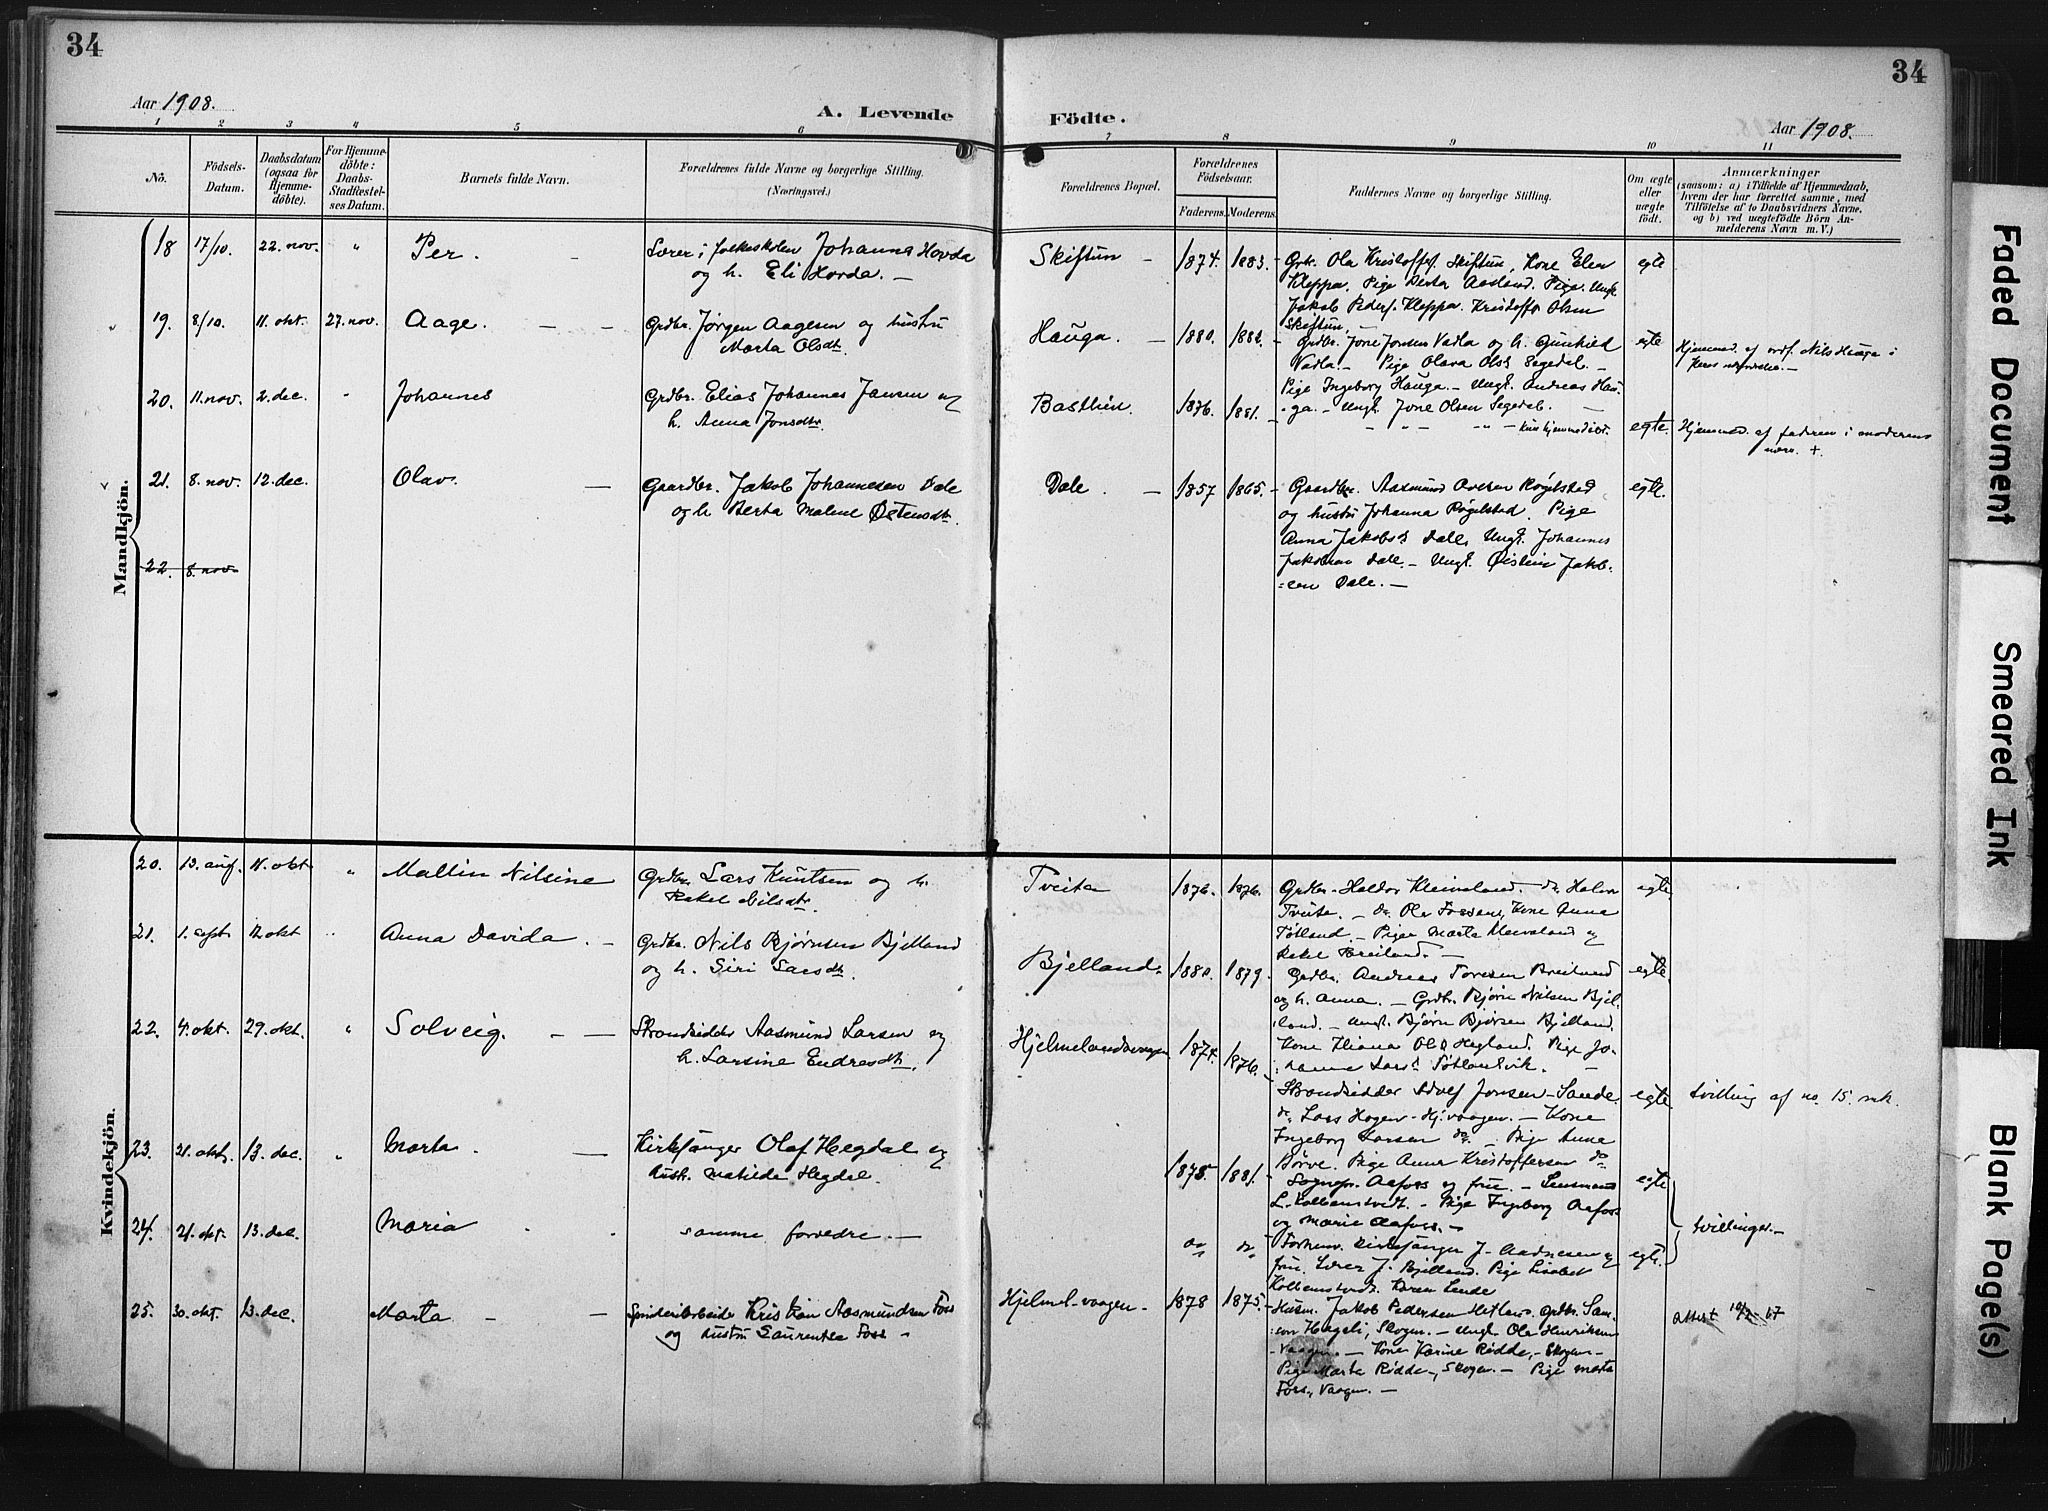 34
34
Aar 1908.
A. Levende
Födte.
Aar 1908.
1 2 3 4 5 6 7 8 9 10 11
No.
Födsels-Datum.
Daabsdatum (ogsaa for Hjemmedöbte).
For Hjemmedöbte: Daabs-Stadfestelses Datum.
Barnets fulde Navn.
Forældrenes fulde Navne og borgerlige Stilling. (Næringsvei.)
Forældrenes Bopæl.
Forældrenes Födselsaar.
Faderens. Moderens.
Faddernes Navne og borgerlige Stilling.
Om ægte eller uægte födt.
Anmærkninger
(saasom: a) i Tilfælde af Hjemmedaab,
hvem der har forrettet samme, med
Tilföielse af to Daabsvidners Navne.
og b) ved uægtefödte Börn An-
melderens Navn m. V.)
Mandkjön.
18 17/10. 22. nov. " Per. -
Lærer i folkeskolen Johanna Hovda
og h. Eli Hovda. -
Skiftun - 1874. 1883.
Grbr. Ola Kristoffs. Skiftun, Kone Elen
Kleppa. Pige Berta Aasland. Pige.
Jakob Peders. Kleppa. Kristoffer Olsen
Skiftun.
egte
19. 8/10. 11. okt. 27. nov. Aage. - -
Grdbr. Jørgen Aagesen og hustru
Marta Olsdt.
Hauga. - 1880. 1882.
Grdbr. Jone Jonsen Vadla og h. Gunhild
Vadla. - Pige Olava Olsd. Segedal. -
Pige Ingeborg Hauga. - Ungk. Andreas Hau-
ga. - Ungk. Jone Olsen Segedal.
egte
Hjemmed. af ordf. Nils Hauga i
20. 11. nov. 2. dec. " Johannes
Grdbr. Elias Johannes Jansen og
h. Anna Jonsdtr.
Basthun. 1876. 1881.
- " - " - kun hjemmedøbt.
egte.
Hjemmed. af faderen i moderens
nærv. +.
21. 8. nov. 12. dec. Olav. -
Gaardbr. Jakob Johannesen Dale
og h Berta Malene Østensdtr.
Dale. - 1857 1865.
Gaardbr. Aasmund Ovesen Røgelstad
og hustru Johanna Røgelstad. Pige
Anna Jakobsd. Dale, Ungk. Johannes
Jakobsen Dale. - Ungk. Øistein Jakob-
sen Dale. -
egte.
22. 8. nov.
Kvindekjön.
20. 13. aug. 11. okt " Mallin Nilsine
Grdbr. Lars Knutsen og h.
Rakel Nilsdtr.
Tveita 1876. 1876.
Grdbr. Haldor Kleivaland. - do. Halvor
Tveita. - do. Ole Fossene, Kone Anna
Tøtland. - Piger Marta Kleivaland og
Rakel Breiland. -
egte.
21. 1. sept. 11. okt " Anna Davida. -
Grdbr. Nils Bjørnsen Bjelland
og h. Siri Larsdtr.
Bjelland. 1880. 1879.
Grdbr. Andreas Toresen Breiland
og h. Anna. - Grdbr. Bjørn Nilsen Bjel-
land. - Ungk. Bjørn Bjørsen Bjelland.
Kone Eliana Olsd Hegland. Pige Jo-
hanne Larsd. Tøtlandsvik. -
egte.
22. 4. okt. 29. okt. " Solveig. - -
Strandsidder Aasmund Larsen og
h. Larsine Endresdtr.
Hjelmelandsvaagen 1874. 1876.
Strandsidder Adolf Jonsen - Sande.
do. Lars Hagen - Hj.vaagen. - Kone
Ingeborg Larsen do. - Pige Anne
Børve. Pige Anna Kristoffersen do.
egte.
tvilling af no. 15. mk.
23. 21. okt. 13. dec. " Marta. -
Kirkesanger Olaf Hegdal og
hustr. Matilde Hegdal.
1878. 1881.
Sognepr. Aafoss og frue. - Lensmand
L. Kolbenstvedt. - Pige Ingeborg Aafoss
og Marie Aafoss. -
egte
tvillinger. -
24. 21. okt. 13. dec. Maria
samme forældre. -
do do
Forhenv. Kirkesanger J. Aadnesen og
frue. Lærer J. Bjelland. Pige Lisabet
Kolbenstvedt. Karen Lende
egte.
25. 30. okt. 13. dec. Marta - -
Spinderiarbeider Kristian Aasmundsen Foss
og hustru Laurentse Foss -
Hjelmel-vaagen - 1878 1875.
Husm. Jakob Pedersen Hetlevs. Grdbr. Sam-
son Hageli, Skogen. - Ungk. Ole Henriksen
Vaagen. - Kone Karine Rødde, - Skogen -
Pige Marta Rødde -, Skogen. - Pige Marta
Foss, Vaagen. -
attest
Faded Document
Smeared Ink
Blank Page(s)